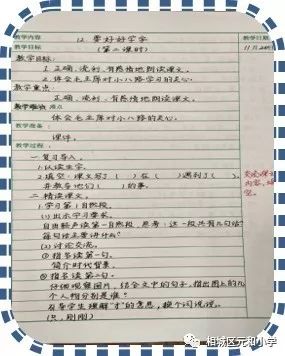 教学内容 12. 要好好学字 教学日期
教学目标 (第二课时) 11月
教学目标:
1. 正确、流利、有感情地朗读课文。
2. 体会毛主席对小八路的关心。
教学重点:
1. 正确、流利、有感情地朗读课文。
教学难点
体会毛主席对小八路的关心。
教学准备:
课件。
教学过程:
一. 复习导入。
1. 认读生字。
2. 填空: 课文写了( )在( )遇到了( ),
并教给他们( )的事。
二. 精读课文。
1. 学习第1自然段。
(1) 出示学习要求。
自由轻声读第一自然段, 思考: 这一段共有几句话?
每句话主要讲什么?
(2) 讨论交流。
① 指名读第一句。
简介时代背景。
② 指名读第二句。
仔细观察图片, 结合文中的句子, 指出图上的几
个人物分别是谁?
引导学生理解"才"的意思, 换个词说说。
(只, 刚刚)
相城区元和小学